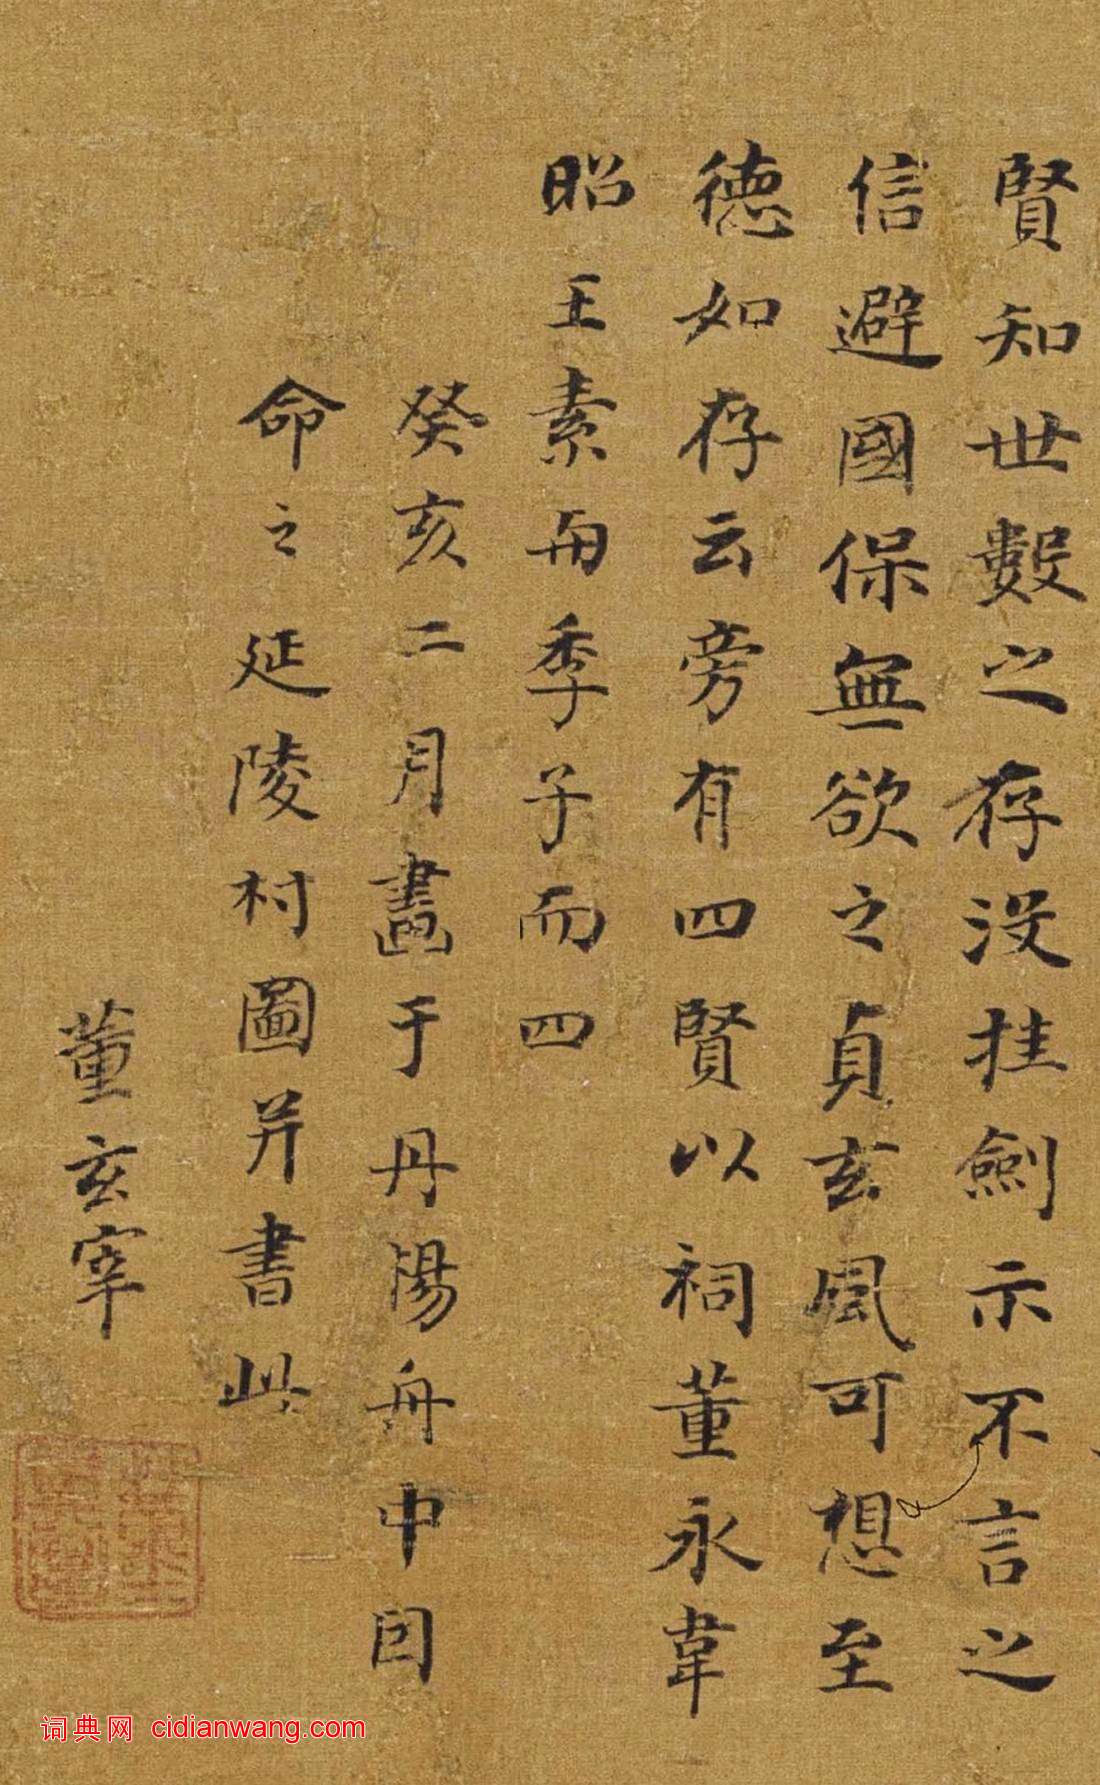 賢知世數之存没挂劍示不言之
信避國保無欲之貞玄風可想至
德如存云旁有四賢以祠董永韋
昭王素而季子而四
癸亥二月畫于丹陽舟中因
命之延陵村圖并書此
董玄宰
词典网 cidianwang.com